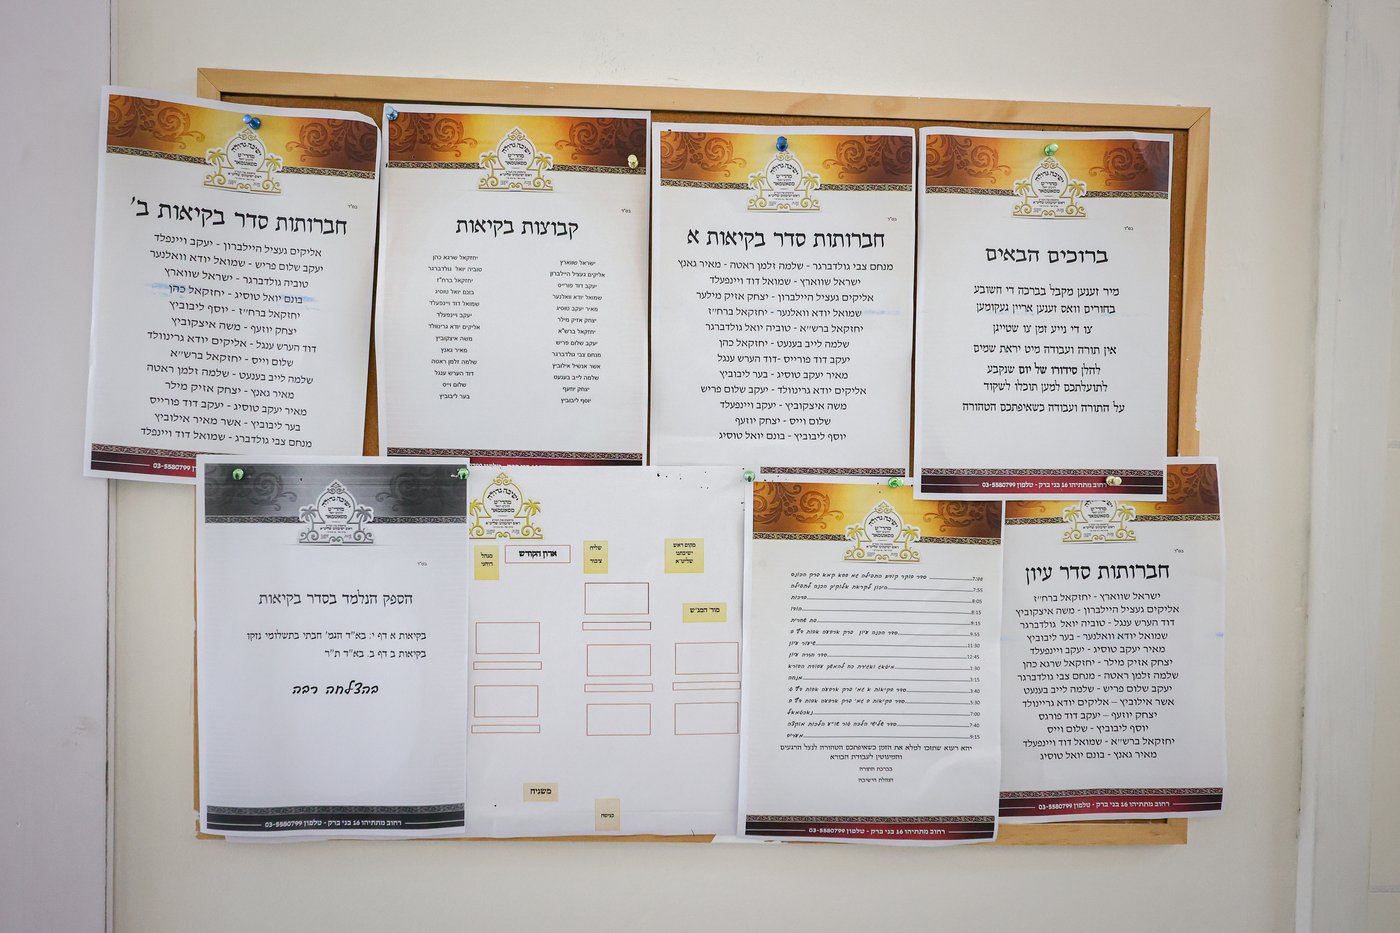 בס"ד
חברותות סדר בקיאות ב'
אליקים געציל היילברון - יעקב ויינפלד
יעקב שלום פריש - שמואל יודא וואלנער
טוביה גולדברגר - ישראל שווארץ
בונם יואל טוסיג - יחזקאל כהן
יחזקאל ברח"ז - יוסף ליבוביץ
יצחק יוזעף - משה איצקוביץ
דוד הערש ענגל - אליקים יודא גרינוולד
שלום וייס - יחזקאל ברש"א
שלמה לייב בענעט - שלמה זלמן ראטה
מאיר גאנץ - יצחק אזיק מילר
מאיר יעקב טוסיג - יעקב דוד פורייס
בער ליבוביץ - אשר מאיר אילוביץ
מנחם צבי גולדברג - שמואל דוד ויינפלד
03-5580799
קבוצות בקיאות
ישראל שווארץ
אליקים געציל היילברון
יעקב דוד פורייס
שמואל יודא וואלנער
מאיר יעקב טוסיג
יצחק אזיק מילר
יחזקאל ברש"א
יעקב שלום פריש
מנחם צבי גולדברגר
אשר אנשיל אילוביץ
שלמה לייב בענעט
יצחק יוזעף
יוסף ליבוביץ
יחזקאל שרגא כהן
טוביה יואל גולדברגר
יחזקאל ברח"ז
בונם יואל טוסיג
שמואל דוד ויינפעלד
יעקב ויינפעלד
אליקים יודא גרינוולד
משה איצקוביץ
מאיר גאנץ
שלמה זלמן ראטה
דוד הערש ענגל
שלום וייס
בער ליבוביץ
בס"ד
חברותות סדר בקיאות א
מנחם צבי גולדברגר - שלמה זלמן ראטה - מאיר גאנץ
ישראל שווארץ - שמואל דוד ויינפעלד
אליקים געציל היילברון - יצחק אזיק מילער
שמואל יודא וואלנער - יחזקאל ברח"ז
יחזקאל ברש"א - טוביה יואל גולדברגר
שלמה לייב בענעט - יחזקאל כהן
יעקב דוד פורייס -דוד הערש ענגל
מאיר יעקב טוסיג - בער ליבוביץ
אליקים יודא גרינוולד - יעקב שלום פריש
משה איצקוביץ - יעקב ויינפעלד
שלום וייס - יצחק יוזעף
יוסף ליבוביץ - בונם יואל טוסיג
בס"ד
ברוכים הבאים
מיר זענען מקבל בברכה די חשובע
בחורים וואס זענען אריין געקומען
צו די נייע זמן צו שטייגן
אין תורה ועבודה מיט יראת שמים
להלן סידורו של יום שנקבע
לתועלתכם למען תוכלו לשקוד
על התורה ועבודה כשאיפתכם הטהורה
רחוב מתתיהו 16 בני ברק - טלפון 03-5580799
בס"ד
ההספק הנלמד בסדר בקיאות
בקיאות א דף י: בא"ד הגמ' חבתי בתשלומי נזקו
בקיאות ב דף ב. בא"ד ת"ר
בהצלחה רבה
רחוב מתתיהו 16 בני ברק - טלפון 03-5580799
מקום ראש
ישיבתנו
שליט"א
שליח
ציבור
ארון הקודש
מנהל
רוחני
משגיח
כניסה
7:00
7:55
8:05
8:15
9:15
9:55
11:30
12:45
1:30
מנחה
3:15
3:40
5:30
7:00
7:40
מעריב
9:15
יהא רעוא שתזכו למלא את הזמן כשאיפתכם הטהורה לנצל הרגעים
והמינוטין לעבודת הבורא
בברכת התורה
הנהלת הישיבה
רחוב מתתיהו 16 בני ברק - טלפון 03-5580799
בס"ד
חברותות סדר עיון
ישראל שווארץ - יחזקאל ברח"ז
אליקים געציל היילברון - משה איצקוביץ
דוד הערש ענגל - טוביה יואל גולדברגר
שמואל יודא וואלנער - בער ליבוביץ
מאיר יעקב טוסיג - יעקב ויינפעלד
יצחק אזיק מילר - יחזקאל שרגא כהן
שלמה זלמן ראטה - מנחם צבי גולדברגר
יעקב שלום פריש - שלמה לייב בענעט
אשר אילוביץ – אליקים יודא גריינוולד
יצחק יוזעף – יעקב דוד פורגס
יוסף ליבוביץ - שלום וייס
יחזקאל ברש"א - שמואל דוד ויינפעלד
מאיר גאנץ - בונם יואל טוסיג
רחוב מתתיהו 16 בני ברק - טלפון 03-5580799